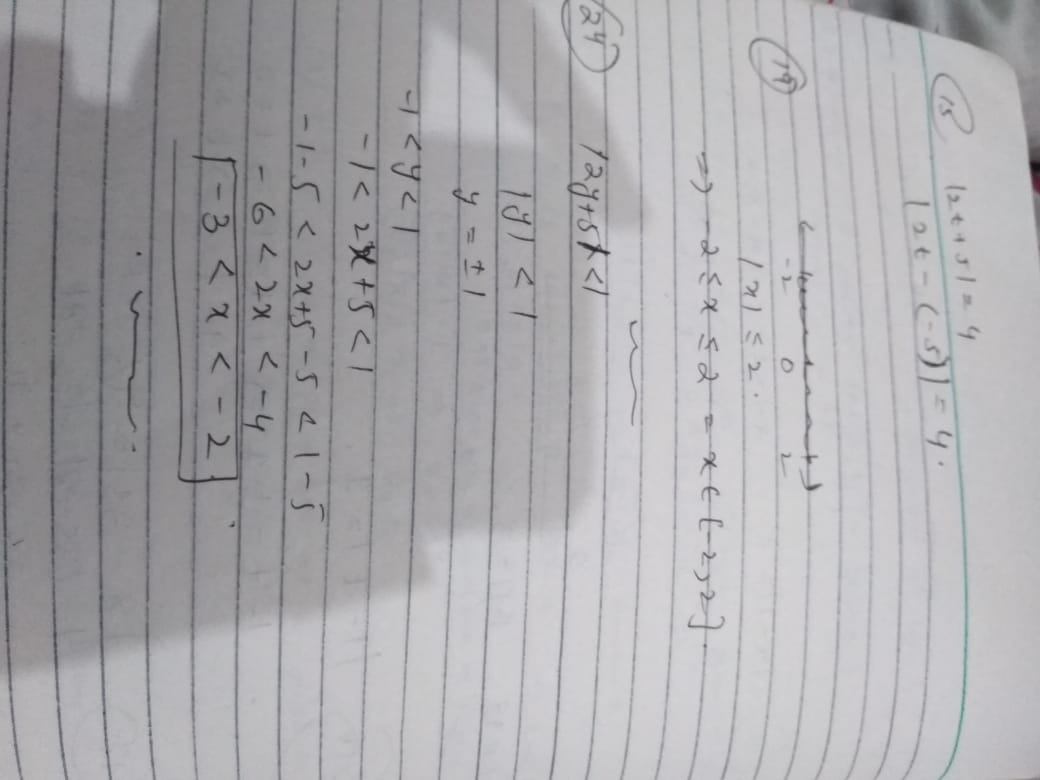 15 |2t+5|=4
|2t-(-5)|=4.
19
-2 0 2
|x| ≤ 2.
=> -2≤x≤2 = x ∈ [-2,2].
24 |2y+5|<1
|y| < 1
y = ±1
-1<y<1
-1<2x+5<1
-1-5<2x+5-5<1-5
-6<2x<-4
-3<x<-2